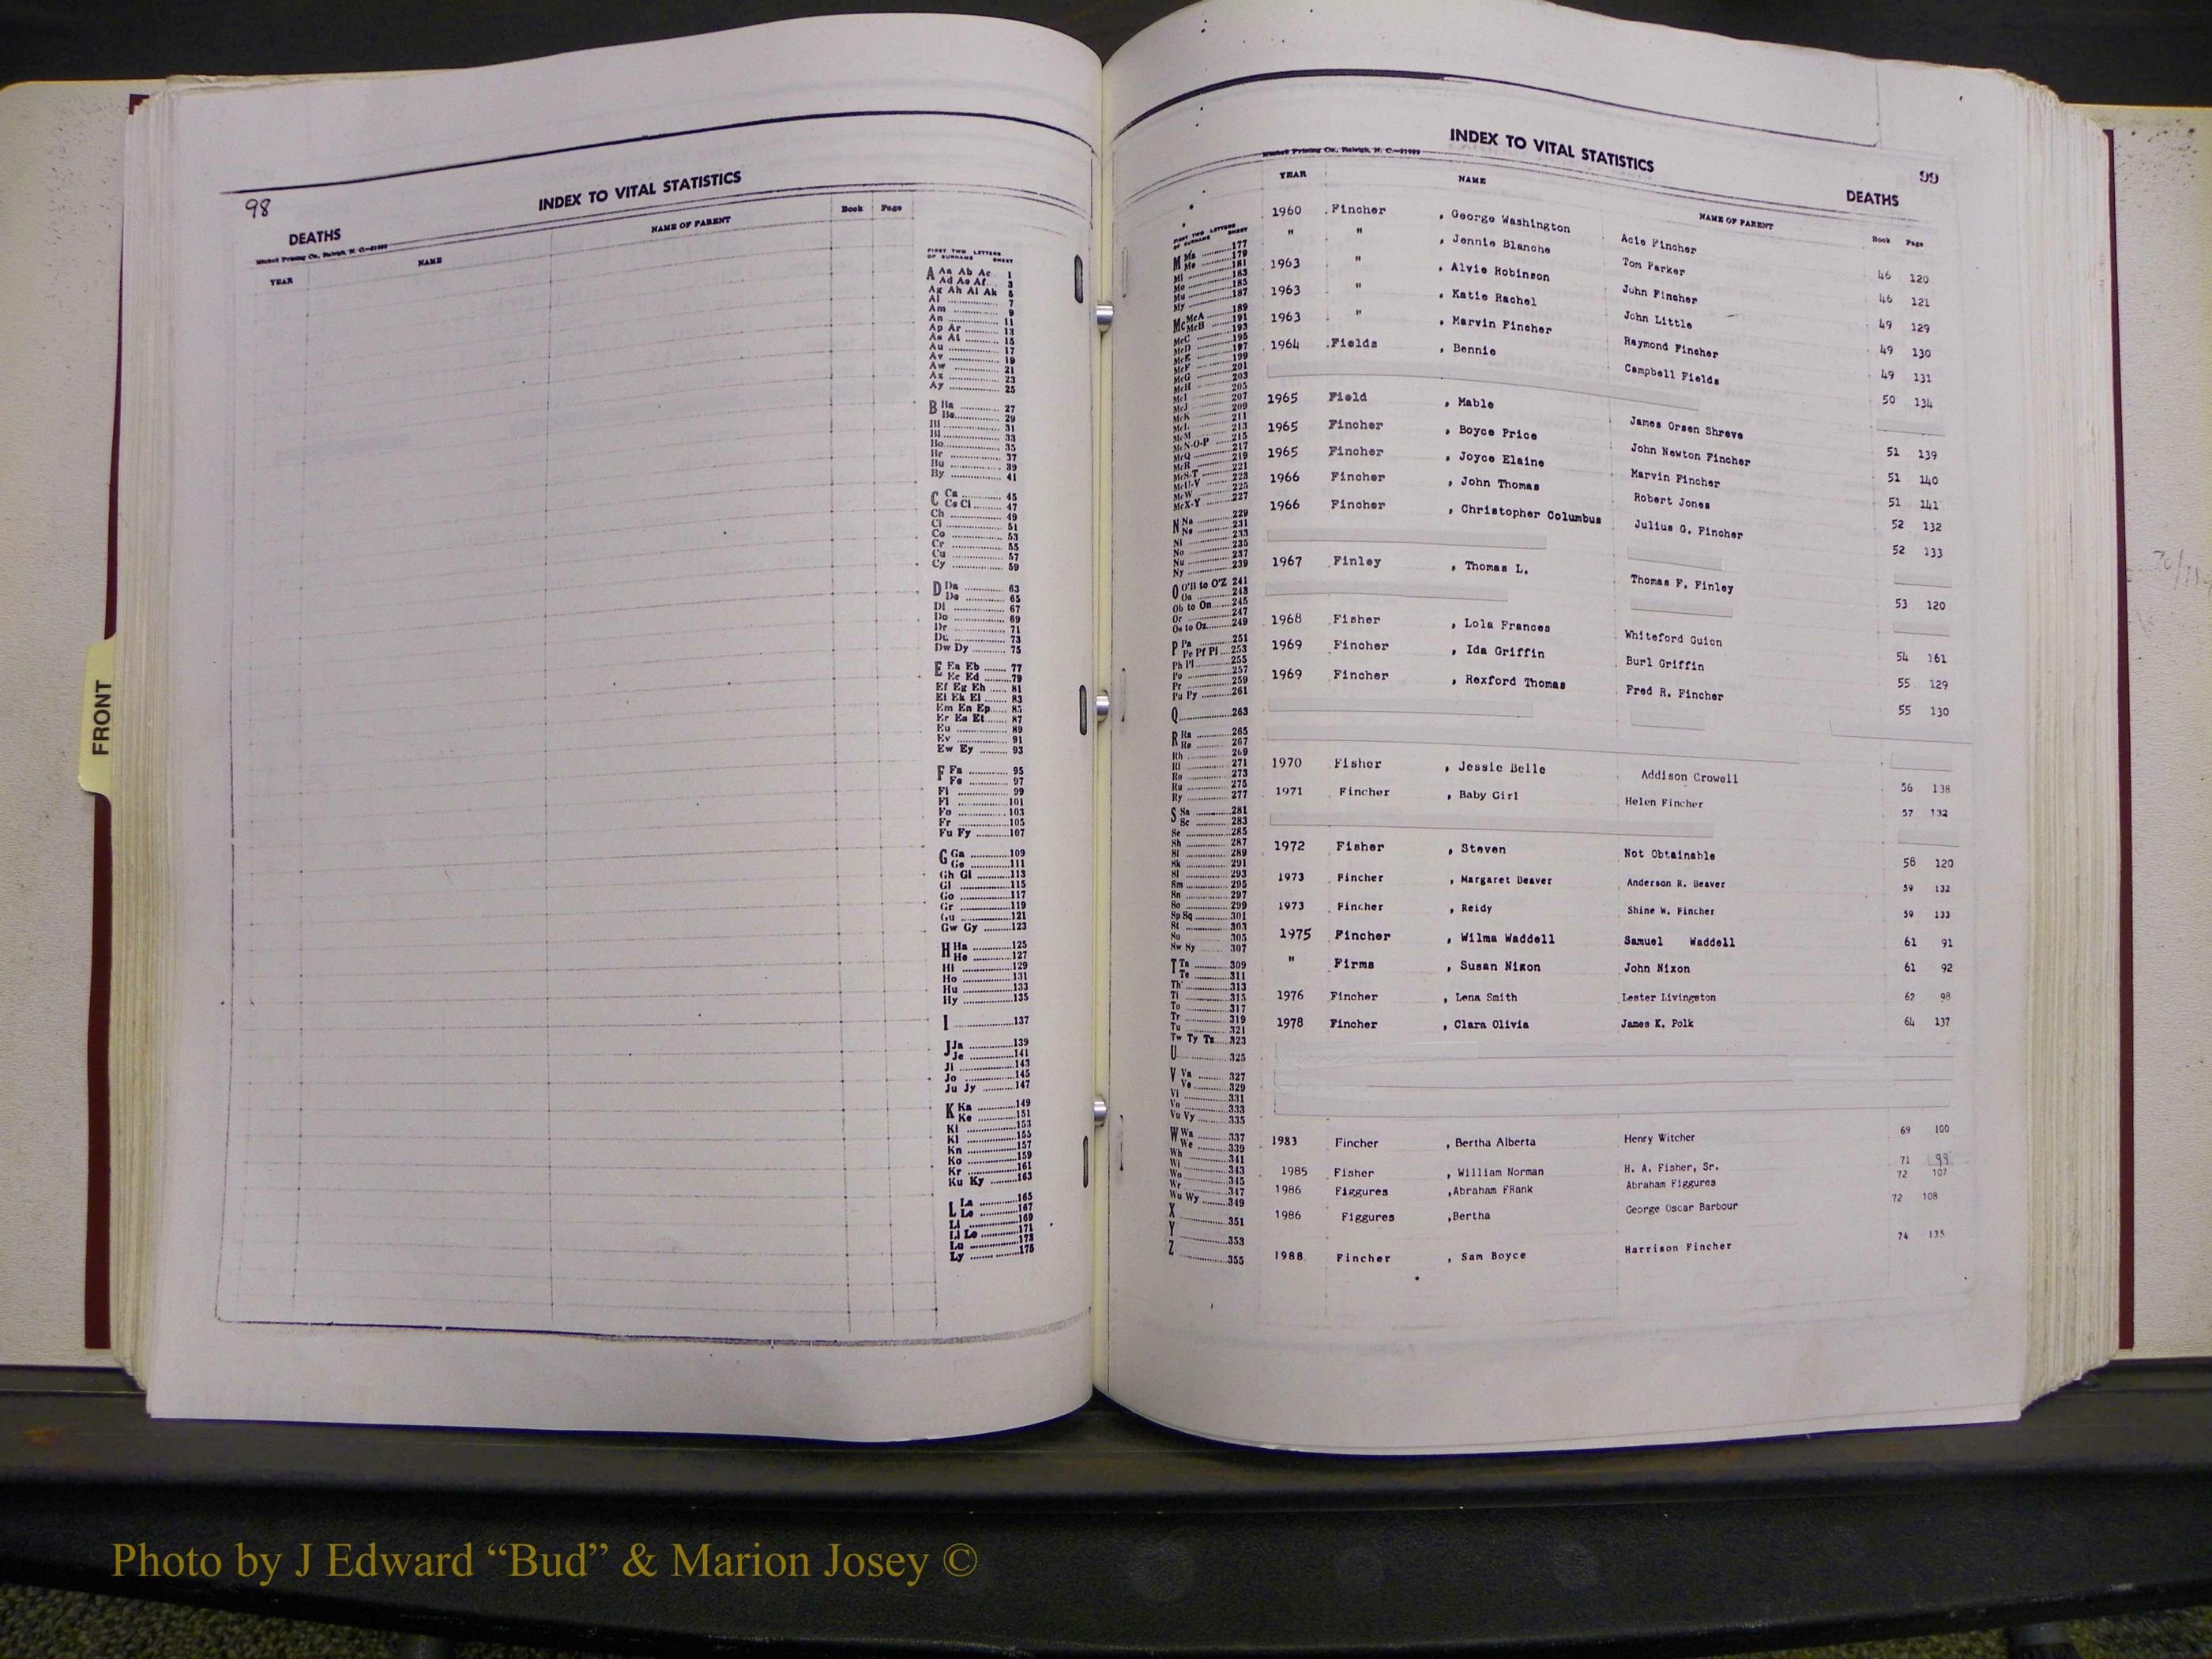 98
INDEX TO VITAL STATISTICS
DEATHS
Mitchell Printing Co., Raleigh, N. C.—21999
YEAR NAME NAME OF PARENT Book Page
FIRST TWO LETTERS
OF SURNAME SHEET
A Aa Ab Ac 1
Ad Ae Af 3
Ag Ah Ai Ak 5
Al 7
Am 9
An 11
Ap Ar 13
As At 15
Au 17
Av 19
Aw 21
Ax 23
Ay 25
B Ba 27
Be 29
Bi 31
Bl 33
Bo 35
Br 37
Bu 39
By 41
C Ca 45
Ce Ci 47
Ch 49
Cl 51
Co 53
Cr 55
Cu 57
Cy 59
D Da 63
De 65
Di 67
Do 69
Dr 71
Du 73
Dw Dy 75
E Ea Eb 77
Ec Ed 79
Ef Eg Eh 81
Ei Ek El 83
Em En Ep 85
Er Es Et 87
Eu 89
Ev 91
Ew Ey 93
F Fa 95
Fe 97
Fi 99
Fl 101
Fo 103
Fr 105
Fu Fy 107
G Ga 109
Ge 111
Gh Gi 113
Gl 115
Go 117
Gr 119
Gu 121
Gw Gy 123
H Ha 125
He 127
Hi 129
Ho 131
Hu 133
Hy 135
I 137
J Ja 139
Je 141
Ji 143
Jo 145
Ju Jy 147
K Ka 149
Ke 151
Ki 153
Kl 155
Kn 157
Ko 159
Kr 161
Ku Ky 163
L La 165
Le 167
Li 169
Ll Lo 171
Lu 173
Ly 175
FRONT
INDEX TO VITAL STATISTICS
99
Mitchell Printing Co., Raleigh, N. C.—21999
DEATHS
YEAR NAME NAME OF PARENT Book Page
FIRST TWO LETTERS
OF SURNAME SHEET
M Ma 177
Me 179
Mi 181
Mo 183
Mu 185
My 187
Mc McA 189
McB 191
McC 193
McD 195
McE 197
McF 199
McG 201
McH 203
McI 205
McJ 207
McK 209
McL 211
McM 213
McN-O-P 215
McQ 217
McR 219
McS-T 221
McU-V 223
McW 225
McX-Y 227
N Na 229
Ne 231
Ni 233
No 235
Nu 237
Ny 239
O O'B to O'Z 241
Oa 243
Ob to On 245
Or 247
Os to Oz 249
P Pa 251
Pe Pf Pi 253
Ph Pl 255
Po 257
Pr 259
Pu Py 261
Q 263
R Ra 265
Re 267
Rh 269
Ri 271
Ro 273
Ru 275
Ry 277
S Sa 281
Sc 283
Se 285
Sh 287
Si 289
Sk 291
Sl 293
Sm 295
Sn 297
So 299
Sp Sq 301
St 303
Su 305
Sw Sy 307
T Ta 309
Te 311
Th 313
Ti 315
To 317
Tr 319
Tu 321
Tw Ty Tz 323
U 325
V Va 327
Ve 329
Vi 331
Vo 333
Vu Vy 335
W Wa 337
We 339
Wh 341
Wi 343
Wo 345
Wr 347
Wu Wy 349
X 351
Y 353
Z 355
1960 Fincher , George Washington Acie Fincher 46 120
" " , Jennie Blanche Tom Parker 46 121
1963 " , Alvie Robinson John Fincher 49 129
1963 " , Katie Rachel John Little 49 130
1963 " , Marvin Fincher Raymond Fincher 49 131
1964 Fields , Bennie Campbell Fields 50 134
1965 Field , Mable James Orsen Shreve 51 139
1965 Fincher , Boyce Price John Newton Fincher 51 140
1965 Fincher , Joyce Elaine Marvin Fincher 51 141
1966 Fincher , John Thomas Robert Jones 52 132
1966 Fincher , Christopher Columbus Julius G. Fincher 52 133
1967 Finley , Thomas L. Thomas F. Finley 53 120
1968 Fisher , Lola Frances Whiteford Guion 54 161
1969 Fincher , Ida Griffin Burl Griffin 55 129
1969 Fincher , Rexford Thomas Fred R. Fincher 55 130
1970 Fisher , Jessie Belle Addison Crowell 56 138
1971 Fincher , Baby Girl Helen Fincher 57 132
1972 Fisher , Steven Not Obtainable 58 120
1973 Fincher , Margaret Beaver Anderson R. Beaver 59 132
1973 Fincher , Reidy Shine W. Fincher 59 133
1975 Fincher , Wilma Waddell Samuel Waddell 61 91
" Firms , Susan Nixon John Nixon 61 92
1976 Fincher , Lena Smith Lester Livingston 62 98
1978 Fincher , Clara Olivia James K. Polk 64 137
1983 Fincher , Bertha Alberta Henry Witcher 69 100
1985 Fisher , William Norman H. A. Fisher, Sr. 71 99
1986 Figgures ,Abraham FRank Abraham Figgures 72 107
1986 Figgures ,Bertha George Oscar Barbour 72 108
1988 Fincher , Sam Boyce Harrison Fincher 74 135
Photo by J Edward “Bud” & Marion Josey ©